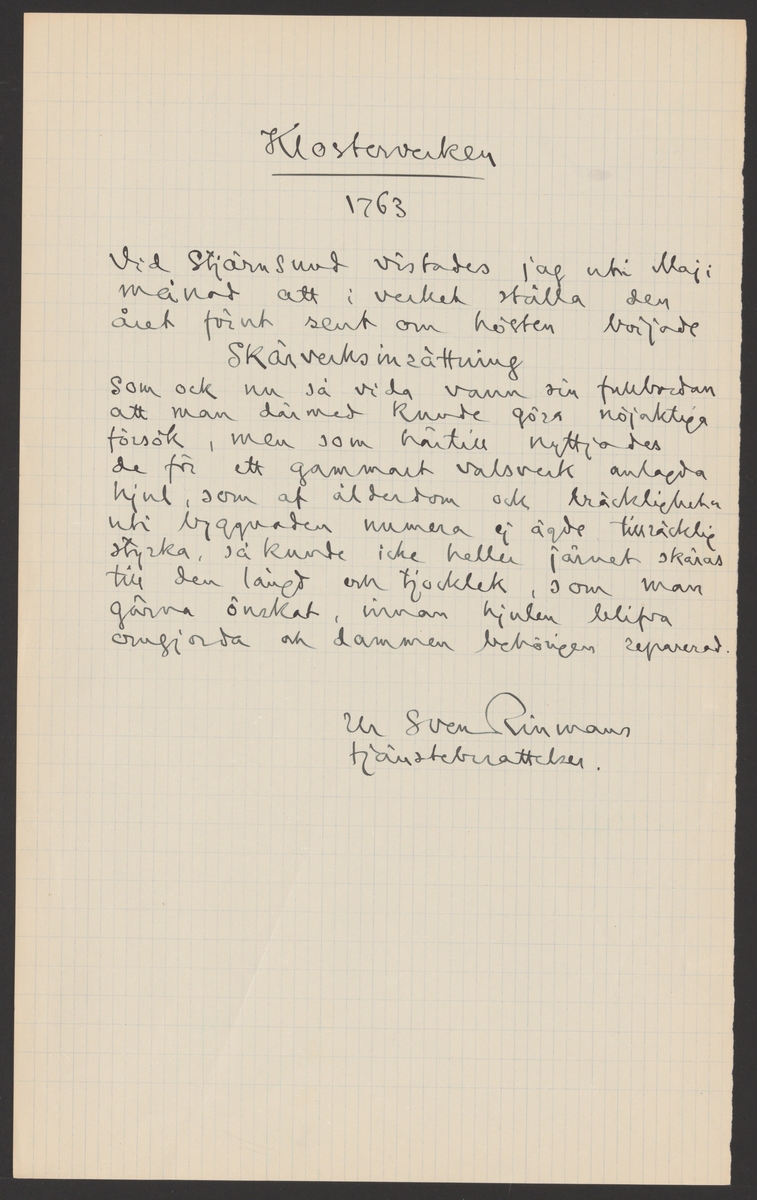 Klosterverken
1763
Vid Stjärnsund vistades jag uti Maji
månad att i verket ställa den
året förut sent om hösten började
Skärverksinrättning
som ock nu så vida vann sin fullbordan
att man därmed kunde göra nöjaktiga
försök, men som härtill nyttjades
de för ett gammart valsverk anlagda
hjul, som af ålderdom ock bräckligheta
uti byggnaden numera ej ägde tillräcklig
styrka, så kunde icke heller järnet skäras
till den längd och tjocklek, som man
gärna önskat, innan hjulen blifva
omgjorda och dammen behörigen reparerad.
Ur Sven Rinmans
tjänsteberattelser.